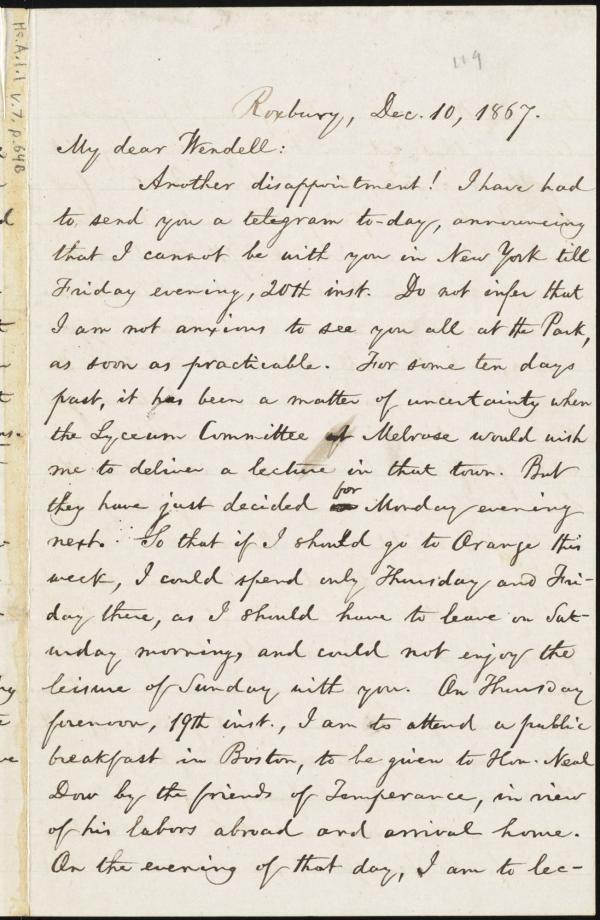 119
Ms.A.1.1 v.7, p.64B
Roxbury, Dec. 10, 1867.
My dear Wendell:
Another disappointment! I have had
to send you a telegram to-day, announcing
that I cannot be with you in New York till
Friday evening, 20th inst. Do not infer that
I am not anxious to see you all at the Park,
as soon as practicable. For some ten days
past, it has been a matter of uncertainty when
the Lyceum Committee of Melrose would wish
me to deliver a lecture in that town. But
they have just decided for Monday evening
next. So that if I should go to Orange this
week, I could spend only Thursday and Fri-
day there, as I should have to leave on Sat-
urday morning, and could not enjoy the
leisure of Sunday with you. On Thursday
forenoon, 19th inst., I am to attend a public
breakfast in Boston, to be given to Hon. Neal
Dow by the friends of Temperance, in view
of his labors abroad and arrival home.
On the evening of that day, I am to lec-